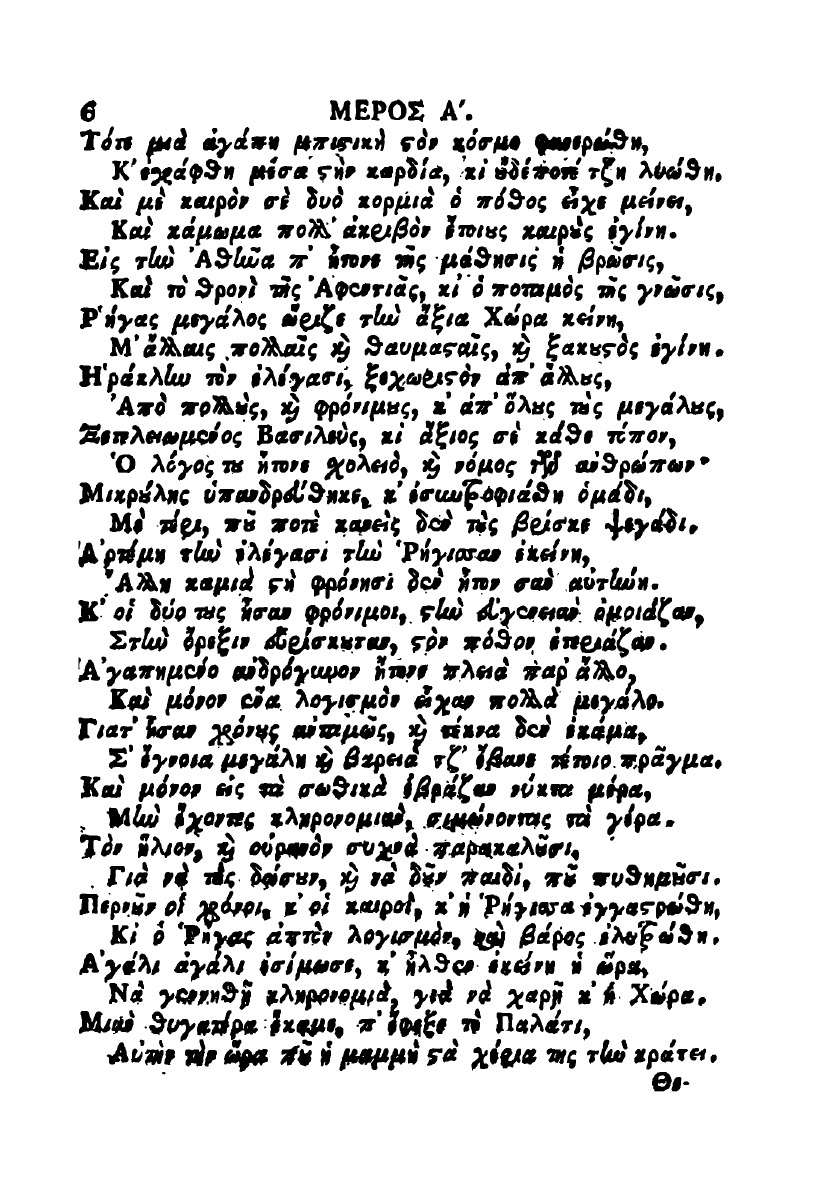 6 ΜΕΡΟΣ Α΄.
Τότε μιὰ ἀγάπη μπιστικὴ στὸν κόσμο φανερώθη,
Κ' ἐγράφθη μέσα στὴν καρδία, κὶ οὐδέποτέ τζη λυώθη.
Καὶ μὲ καιρὸν σὲ δυὸ κορμιὰ ὁ πόθος εἶχε μείνει,
Καὶ κάμωμα πολλ' ἀκριβὸν ἔτοιους καιροὺς ἐγίνη.
Εἰς τὴν Ἀθήνα π' ἦτονε τῆς μάθησις ἡ βρῶσις,
Καὶ τὸ θρονὶ τῆς Ἀφεντιᾶς, κὶ ὁ ποταμὸς τῆς γνῶσις,
Ρήγας μεγάλος ὥριζε τὴν ἄξια Χώρα κείνη,
Μ' ἄλλαις πολλαῖς καὶ θαυμασταῖς, καὶ ξακουστὸς ἐγίνη.
Ἡράκλην τὸν ἐλέγασι, ξεχωριστὸν ἀπ' ἄλλους,
Ἀπὸ πολλοὺς, καὶ φρόνιμους, κ' ἀπ' ὅλους τοὺς μεγάλους,
Ξετελειωμένος Βασιλεὺς, κὶ ἄξιος σὲ κάθε τόπον,
Ὁ λόγος του ἤτονε σχολειὸ, καὶ νόμος τῶν ἀνθρώπων·
Μικρούλης ὑπανδρεύθηκε, κ' ἐσυντροφιάθη ὁμάδι,
Μὲ ταίρι, ποῦ ποτὲ κανεὶς δὲν τοὺς βρίσκε ψεγάδι.
Ἀρτέμη τὴν ἐλέγασι τὴν Ῥήγισσαν ἐκείνη,
Ἄλλη καμιὰ στὴ φρόνησὶ δὲν ἦτον σὰν αὐτήνη.
Κ' οἱ δύο τους ἦσαν φρόνιμοι, στὴν εὐγένειαν ὁμοιάζαν,
Στὴν ὄρεξιν εὑρίσκουνταν, στὸν πόθον ἐτεριάζαν.
Ἀγαπημένο ἀνδρόγυνον ἤτονε πλειὰ παρ' ἄλλο,
Καὶ μόνον ἕνα λογισμὸν εἶχαν πολλὰ μεγάλο.
Γιατ' ἦσαν χρόνους ἀνταμῶς, καὶ τέκνα δὲν ἐκάμα,
Σ' ἔγνοια μεγάλη καὶ βαρειὰ τζ' ἔβανε τέτοιο πρᾶγμα.
Καὶ μόνον εἰς τὰ σωθικὰ ἐβράζαν νύκτα μέρα,
Μὴν ἔχοντας κληρονομιὰν, σιμώνοντας τὰ γέρα.
Τὸν ἥλιον, καὶ οὐρανὸν συχνὰ παρακαλοῦσι,
Γιὰ νὰ τοὺς δώσουν, καὶ νὰ δοῦν παιδὶ, ποῦ πυθημοῦσι.
Περνοῦν οἱ χρόνοι, κ' οἱ καιροὶ, κ' ἡ Ῥήγισσα ἐγγαστρώθη,
Κὶ ὁ Ῥήγας ἀπτὸν λογισμὸν, καὶ βάρος ἐλυτρώθη.
Ἀγάλι ἀγάλι ἐσίμωσε, κ' ἦλθεν ἐκείνη ἡ ὥρα,
Νὰ γεννηθῇ κληρονομιὰ, γιὰ νὰ χαρῇ κ' ἡ Χώρα.
Μιὰν θυγατέρα ἔκαμε, π' ἔφεξε τὸ Παλάτι,
Αὐτὴν τὴν ὥρα ποῦ ἡ μαμμὴ στὰ χέρια της τὴν κράτει.
Θε-